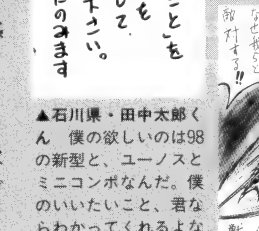 こと」を
を
して、
下さい。
にのみます
▲石川県・田中太郎く
ん　僕の欲しいのは98
の新型と、ユーノスと
ミニコンポなんだ。僕
のいいたいこと、君な
らわかってくれるよな
なぜ我らと
敵対する!!